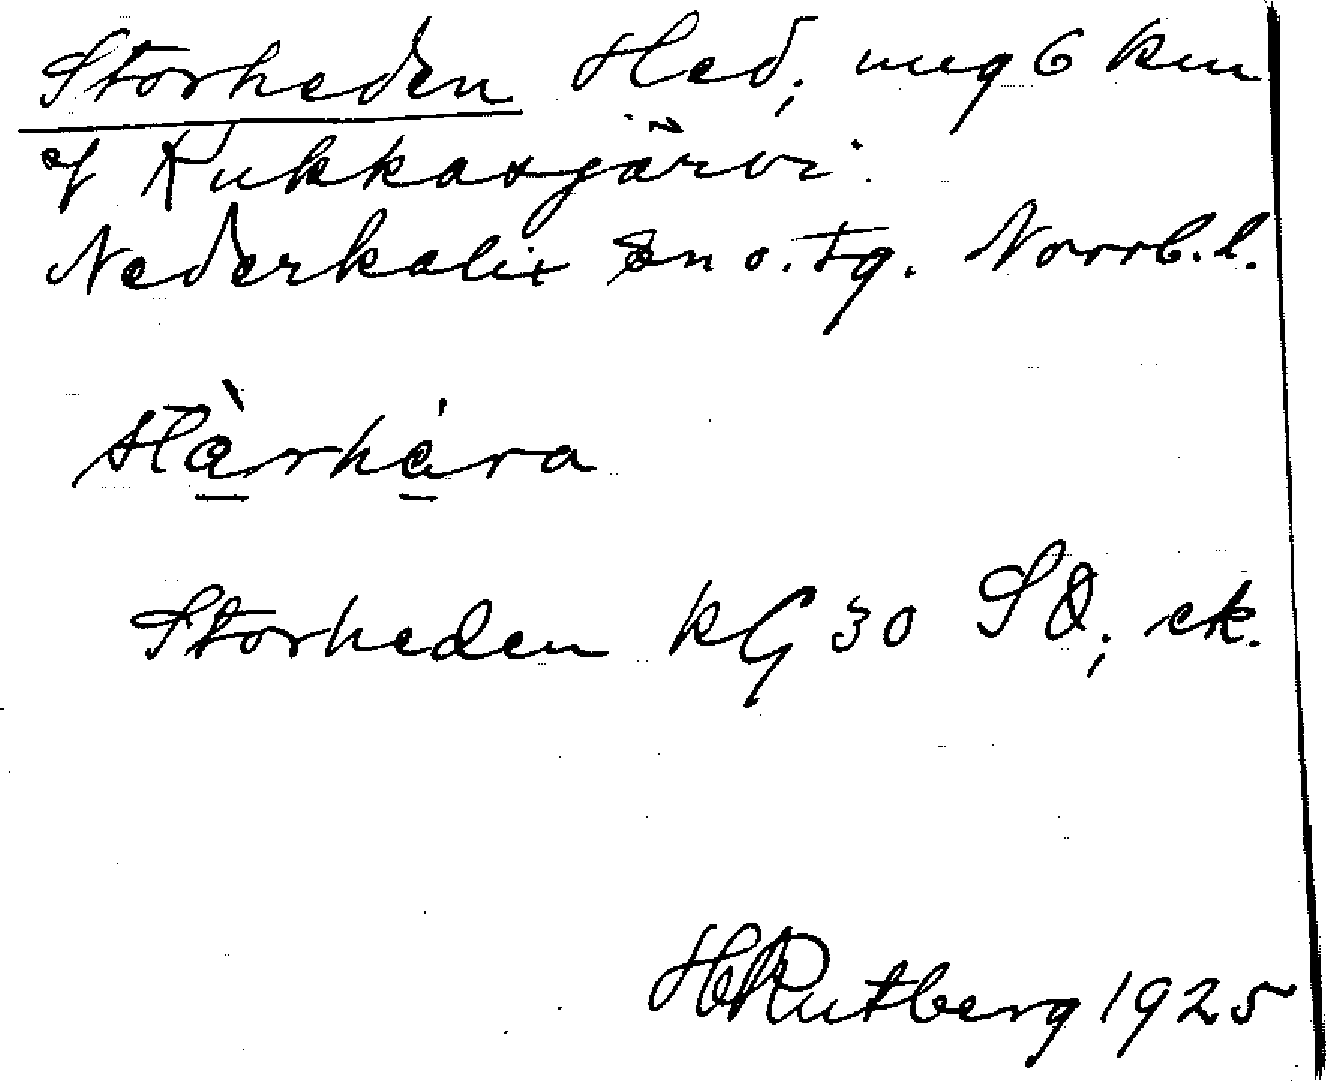 Storheden Hed; ung 6 km
of Kukkasjärvi.
Nederkalix sn o. tg. Norrb. l.
Storheden KG 30 SO; ek.
HRutberg 1925